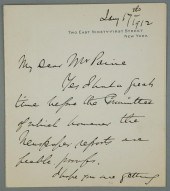 Jany 17th 1912
TWO EAST NINETY-FIRST STREET
NEW YORK
My Dear Mr Paine
Yes I had a great
time before the Committee
of which however the
Newspaper report are
feeble proofs.
Hope you are getting